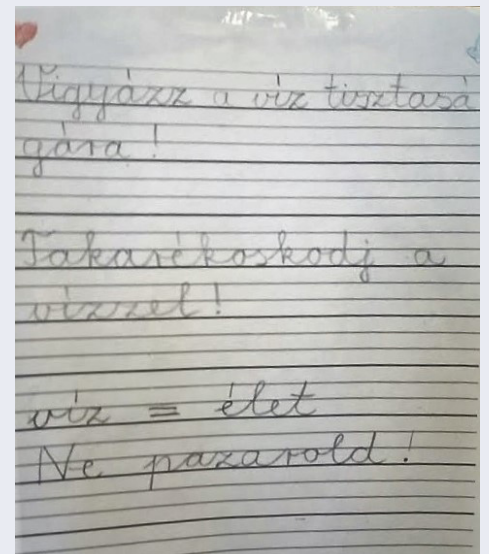 Vigyázz a víz tisztasá
gára!
Takarékoskodj a
vízzel!
víz = élet
Ne pazarold!